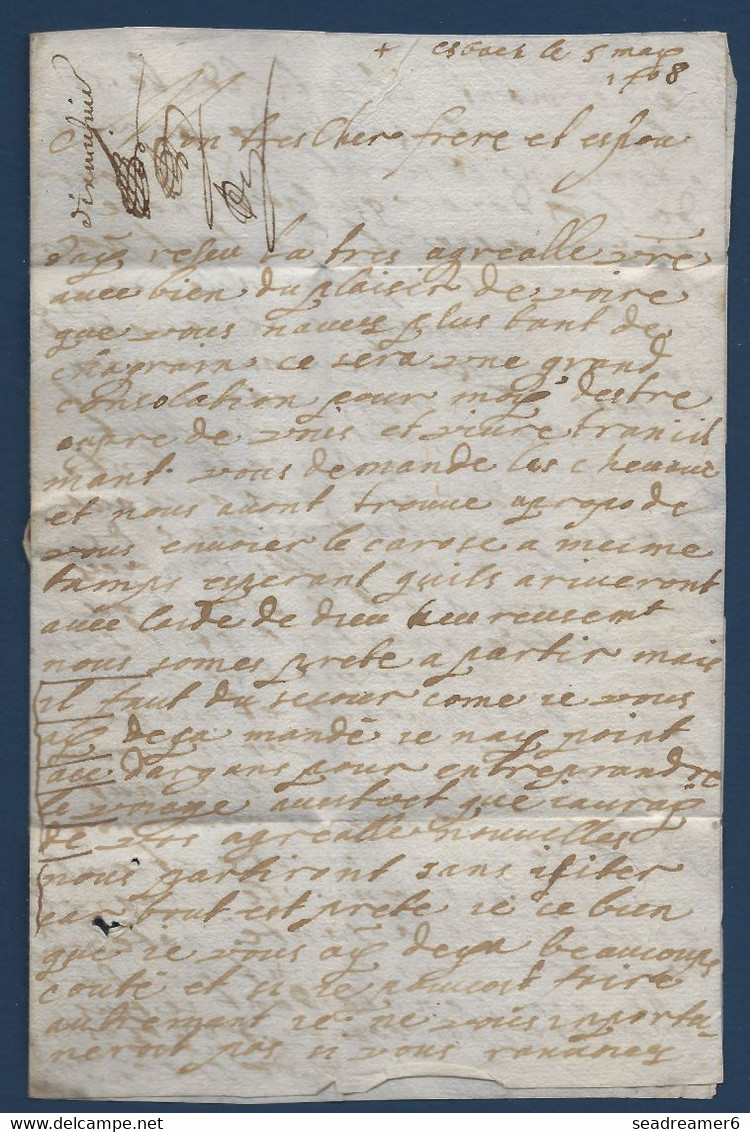 + le 5 may
1708
mon tres Cher frere et espou
Jay reseu la tres agrealle vre
avec bien du plaisir de voire
que vous naves plus tant de
chagrain ce sera vne grand
consolation pour moy destre
aupre de vous et viure tranuil
mant vous demande les cheuaux
et nous auont trouue apropo de
vous enuoier le carose a meime
tamps esperant quils ariueront
avec laide de dieu heureusemt
nous somes prete a partir mais
il faut du secour come ie vous
ay deja mandé ie nay point
ace dargans pour entreprandre
le voiage aussitost que iauray
de vos agrealle nouuelles
nous partiront sans
car tout est prete ie ce bien
que ie vous ay deja beaucoup
couté et si ie pouuoist faire
autrement ie ne vous inportu-
neroit pas si vous